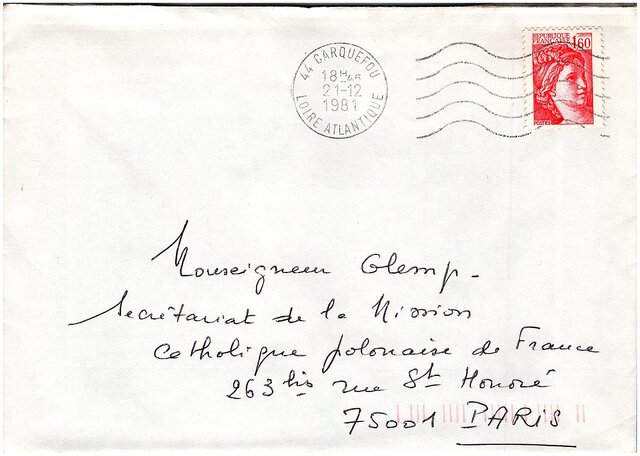 44 CARQUEFOU
18H45
21-12
1981
LOIRE ATLANTIQUE
REPUBLIQUE
FRANÇAISE 1,60
POSTES
Monseigneur Glemp -
Secrétariat de la Mission
Catholique polonaise de France
263 bis rue St Honoré
75001 PARIS